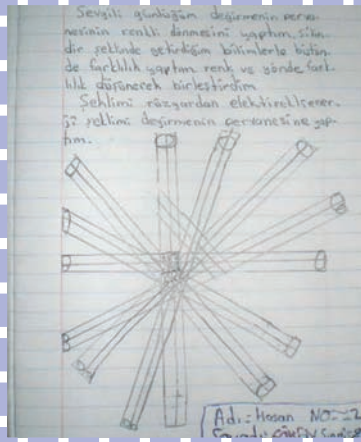 Sevgili günlüğüm değirmenin perva-
nesinin renkli dönmesini yaptım. silin-
dir şeklinde getirdiğim bilimlerle bütün-
de farklılık yaptım renk ve yönde fark-
lılık düşünerek birleştirdim
Şeklimi rüzgardan elektirik
şeklimi değirmenin pervanesine yap-
tım.
Adı: Hasan NO: